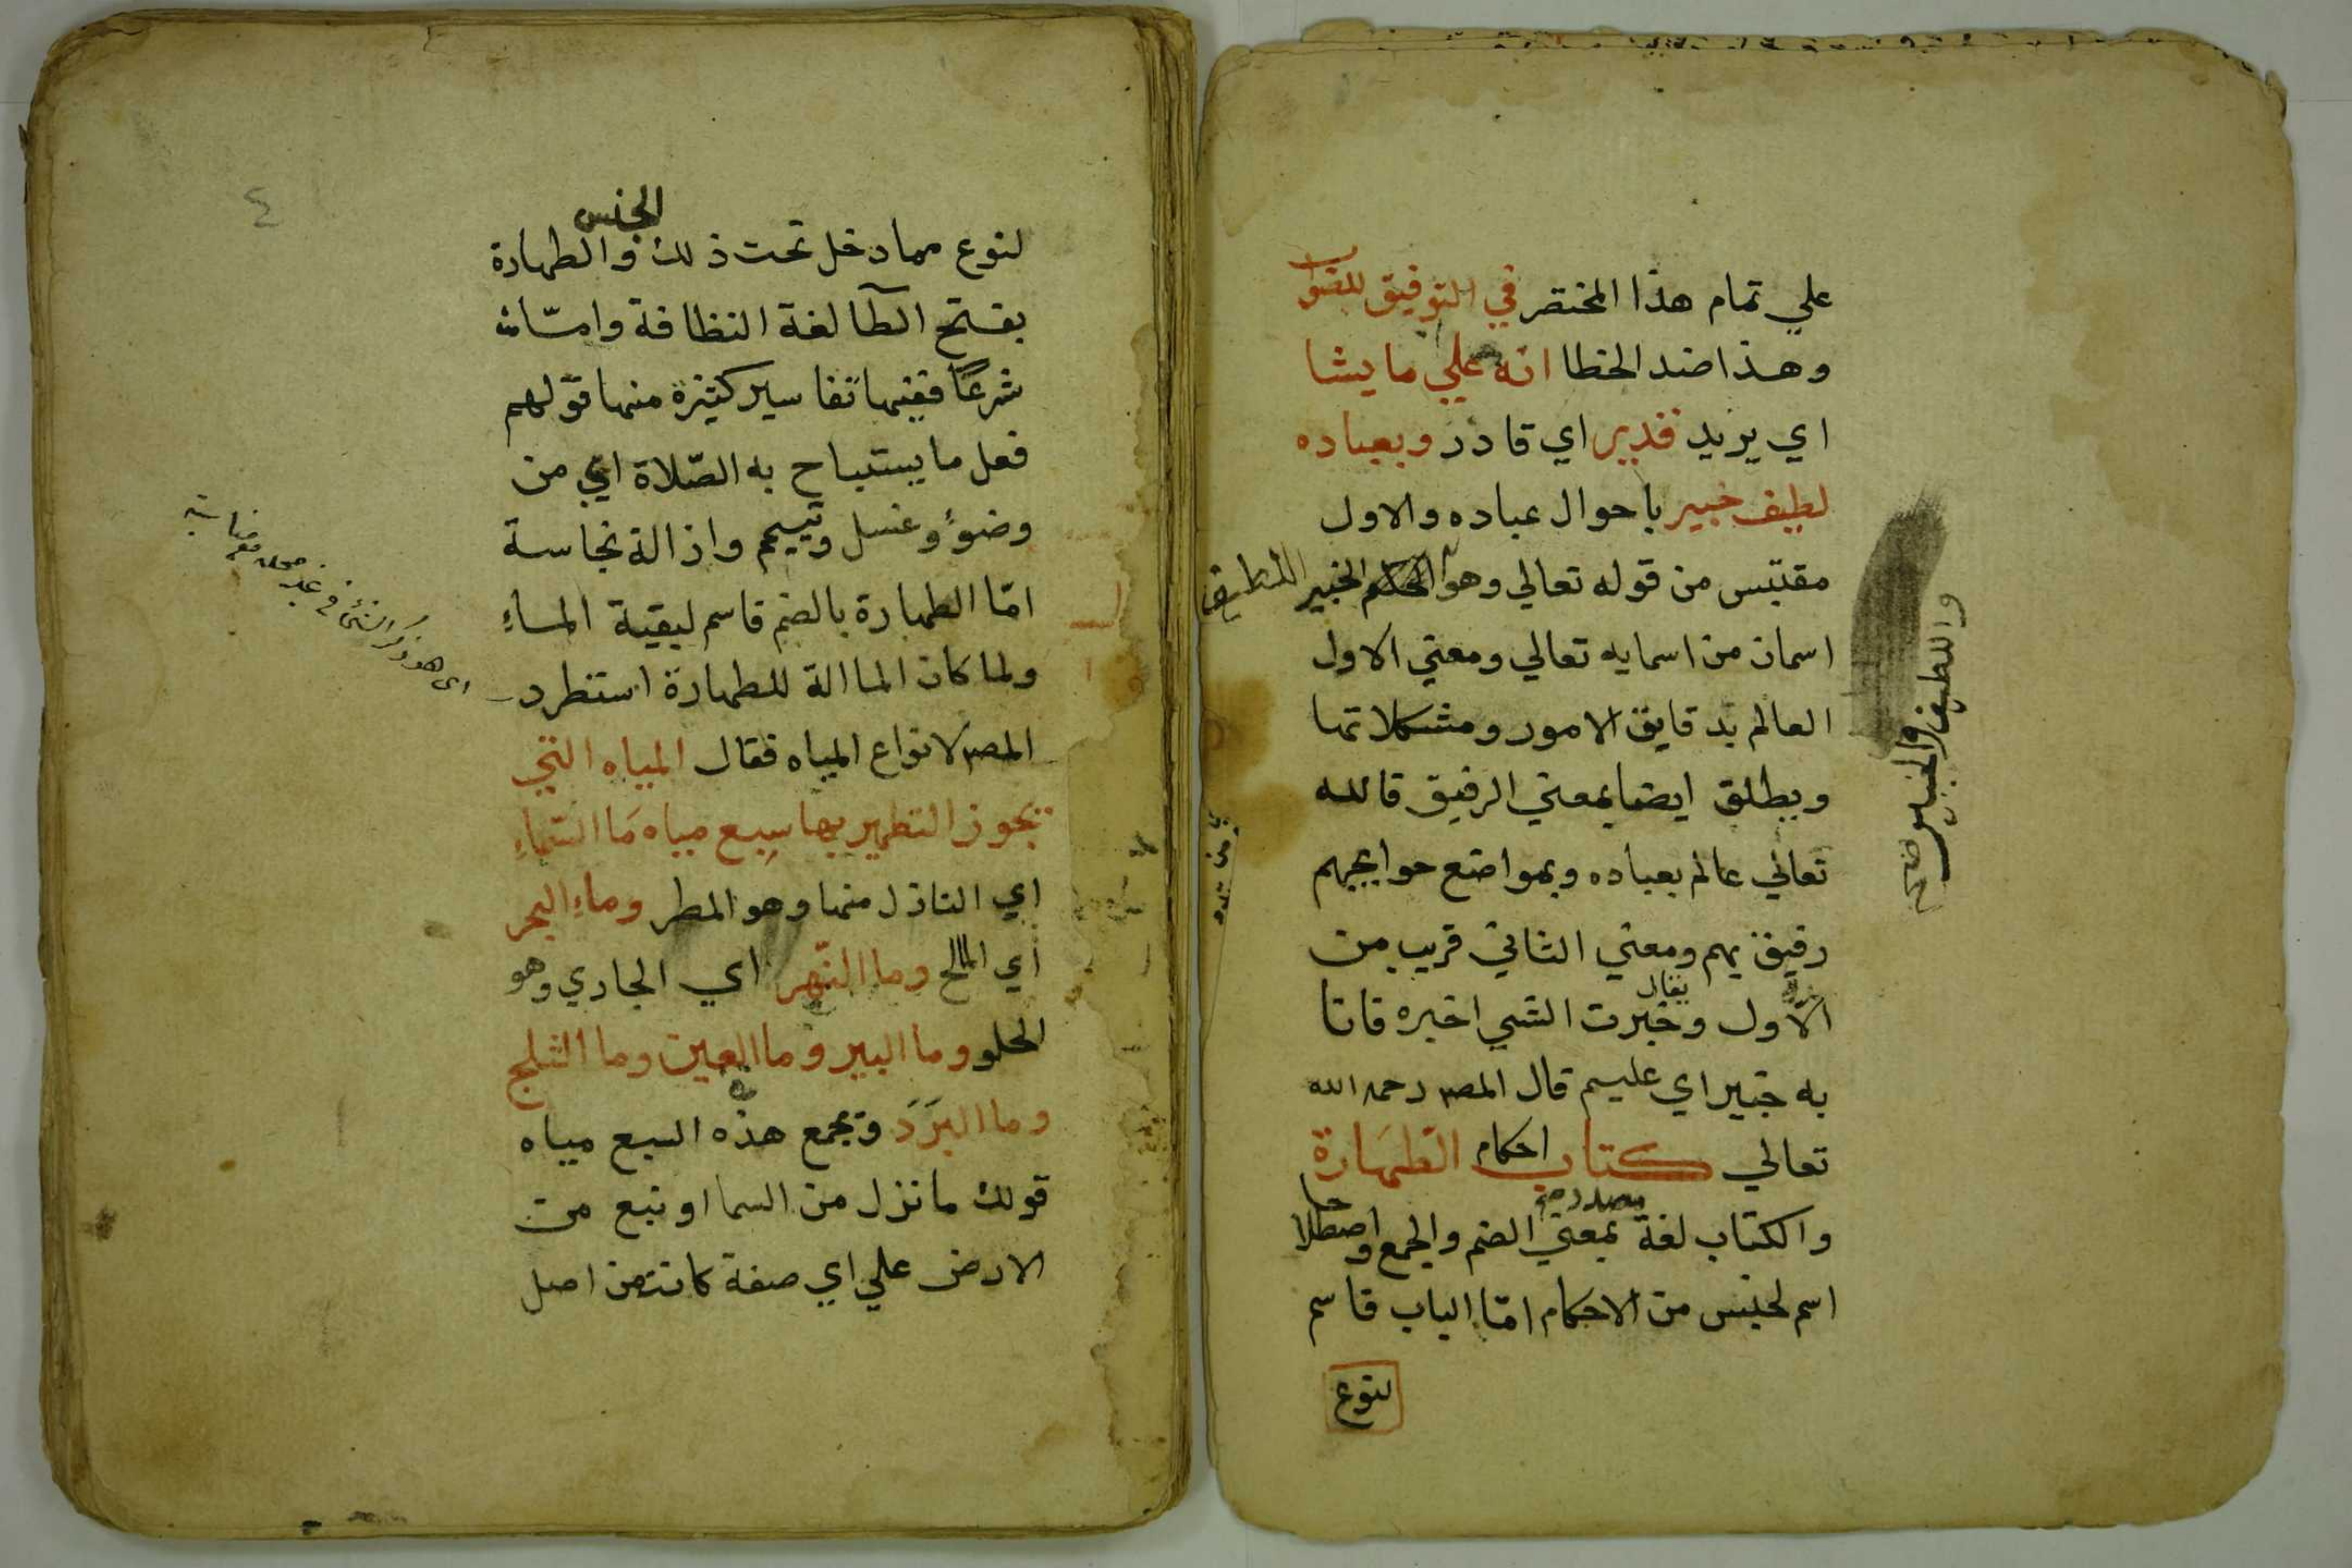 علي تمام هذا المختصر في التوفيق للصواب
وهذا ضد الخطا انه علي ما يشا
اي يريد قدير اي قادر وبعباده
لطيف خبير باحوال عباده والاول
مقتبس من قوله تعالي وهو الحكيم الخبير اللطيف
واللطيف والخبير صح
اسمان من اسمايه تعالي ومعني الاول
العالم بدقايق الامور ومشكلاتها
ويطلق ايضا بمعني الرفيق فالله
تعالي عالم بعباده وبمواضع حوايجهم
رفيق بهم ومعني الثاني قريب من
الاول ويقال خبرت الشي اخبره فانا
به خبير اي عليم قال المصـ رحمه الله
تعالي كتاب احكام الطهارة
والكتاب لغة مصدر بمعني الضم والجمع واصطلاحا
اسم لجنس من الاحكام امّا الباب فاسم
لنوع
٤
لنوع مما دخل تحت ذلك الجنس والطهارة
بفتح الطآ لغة النظافة وامّا
شرعًا ففيها تفاسير كثيرة منها قولهم
فعل ما يستباح به الصّلاة اي من
وضوءٍ وغسل وتيمم وازالة نجاسة
امّا الطهارة بالضم فاسم لبقية الماءِ
ولما كان الما الة للطهارة استطرد
اي هو ذكر الشئ في غير محله
المصـ لانواع المياه فقال المياه التي
يجوز التطهير بها سبع مياه مَا السّماءِ
اي النازل منها وهو المطر وماءِ البحر
اي المالح وما النّهر اي الجاري وهو
الحلو وما البير وما العين وما الثلج
وما البَرَدَ ويجمع هذه السبع مياه
قولك ما نزل من السما او نبع من
الارض علي اي صفة كانت من اصل